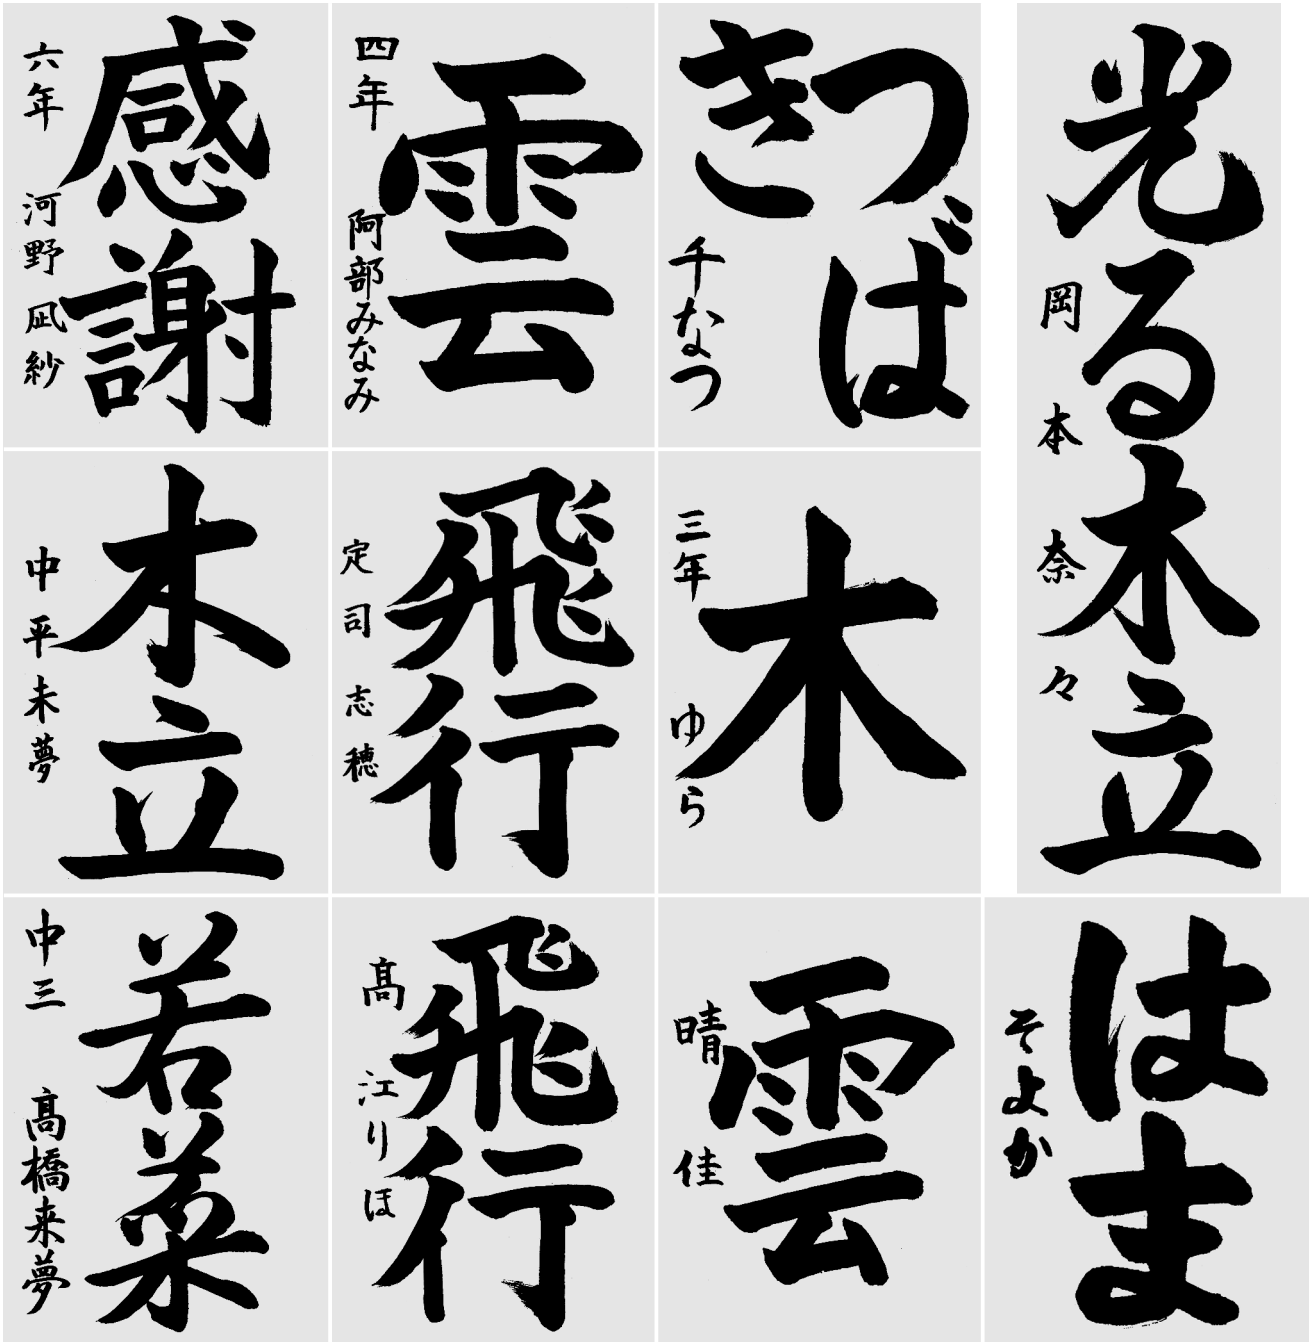 光る木立
岡本奈々
つばき
千なつ
雲
四年 阿部みなみ
感謝
六年 河野凪紗
木
三年 ゆら
飛行
定司志穂
木立
中平未夢
はま
そよか
雲
晴佳
飛行
髙江りほ
若菜
中三 髙橋来夢